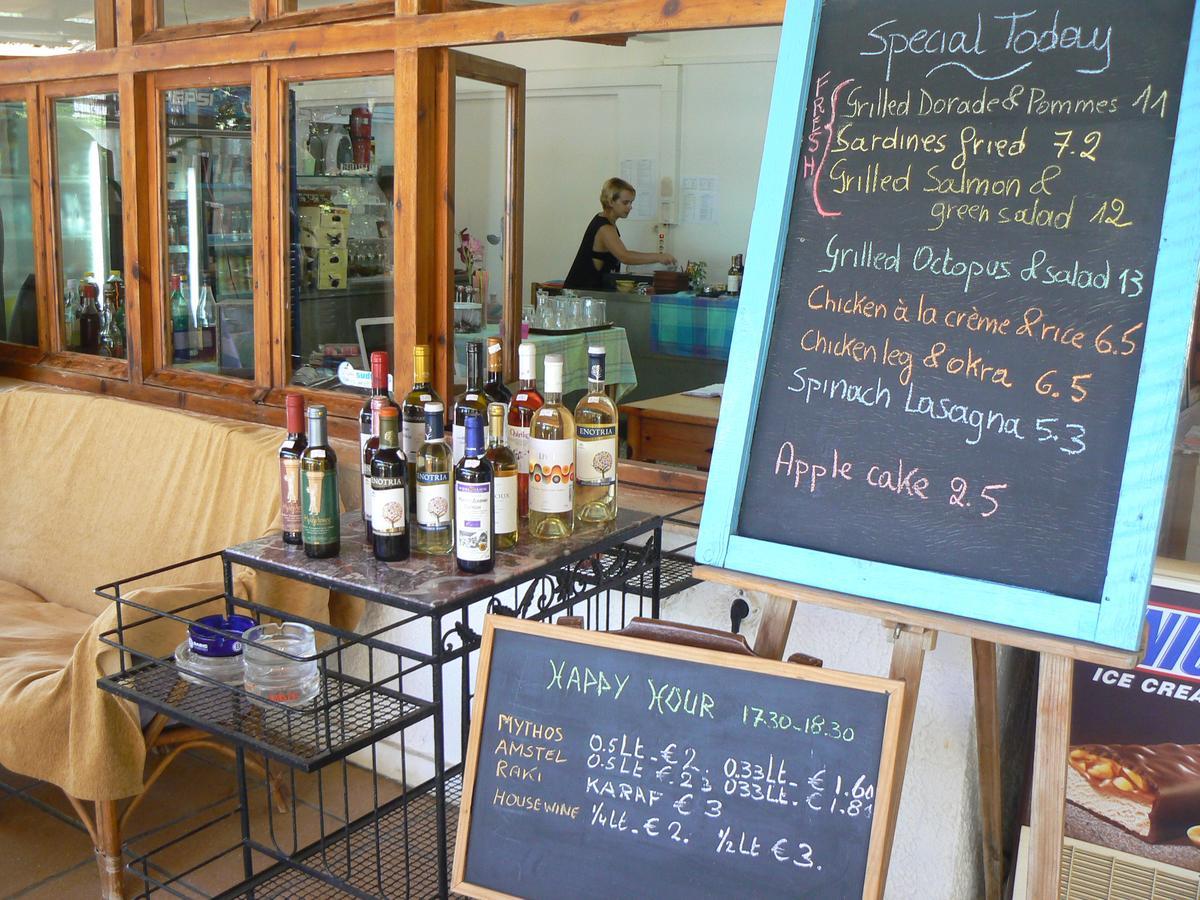 Special Today
FRESH
Grilled Dorade & Pommes 11
Sardines fried 7.2
Grilled Salmon &
green salad 12
Grilled Octopus & salad 13
Chicken à la crème & rice 6.5
Chicken leg & okra 6.5
Spinach Lasagna 5.3
Apple cake 2.5
HAPPY HOUR 17.30-18.30
MYTHOS 0.5Lt - € 2 0.33Lt - € 1.60
AMSTEL 0.5Lt - € 2,3 033Lt - € 1.8
RAKI KARAF € 3
HOUSEWINE 1/4Lt - € 2. 1/2Lt € 3.
PEPSI
ENOTRIA
ENOTRIA
ENOTRIA
ICE CREA